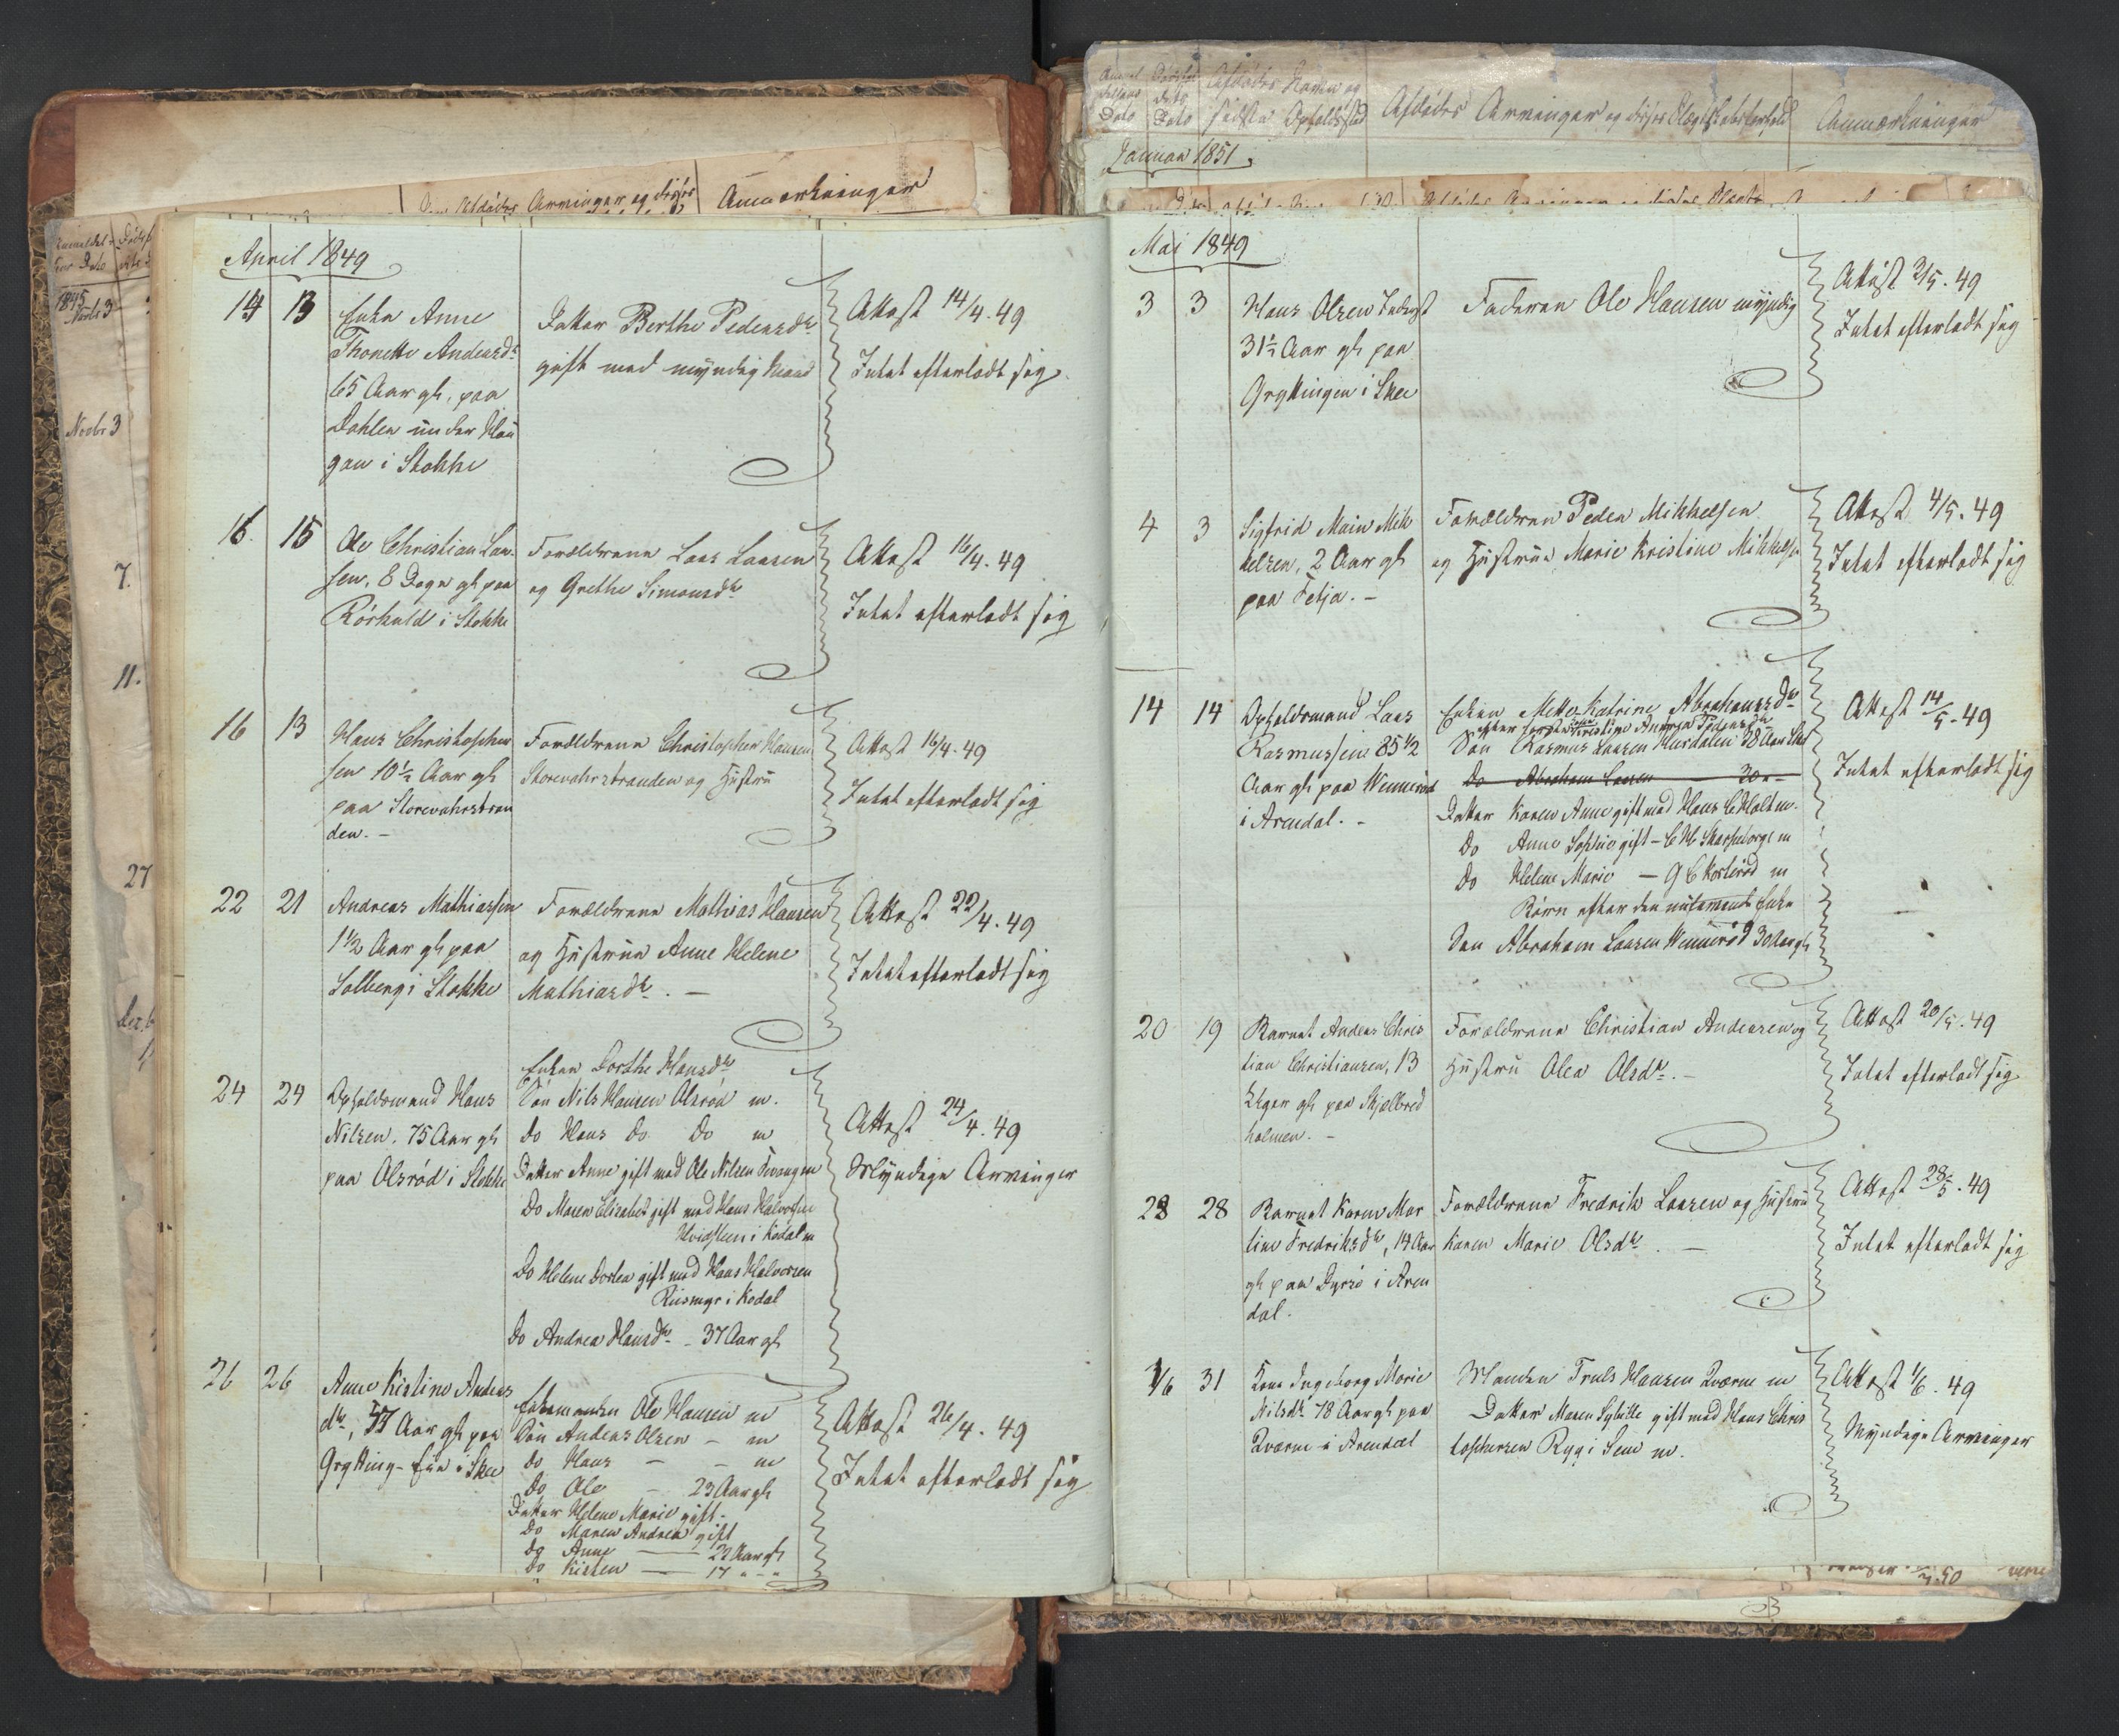 Anmærkninger
Afdødes Arvinger og disses
Afdødes Navn og
sidste Opholdssted
Afdødes Arvinger og disses Slægtskabsforhold
Anmærkninger
Januar 1851
1845
Novbr 3
Novbr 3
7.
11.
27
April 1849
14 13
Enke Anne
Thonette Andersdr
65 Aar gl. paa
Dahlen under Hau
gan i Stokke
Datter Berthe Pedersdr
gift med myndig Mand
Attest 14/4. 49
Intet efterladt sig
16 15
Ole Christian Lar
sen, 8 Dage gl paa
Rørkuld i Stokke
Forældrene Lars Larsen
og Grethe Simonsdr
Attest 16/4. 49
Intet efterladt sig
16 13
Hans Christopher
sen 10½ Aar gl
paa Storevahrstran
den. –
Forældrene Christopher Hansen
Storevahrstranden og Hustru
Attest 16/4. 49
Intet efterladt sig
22 21
Andreas Mathiassen
1½ Aar gl paa
Solberg i Stokke
Forældrene Mathias Hansen
og Hustrue Anne Helene
Mathiasdr. –
Attest 22/4. 49
Intet efterladt sig
24 24
Opholdsmand Hans
Nilsen. 75 Aar gl
paa Olsrød i Stokke
Enken Dorthe Hansdr
Søn Nils Hansen Olsrød m.
Do Hans Do Do m
Datter Anne gift med Ole Nilsen m
Do Maren Elisabet gift med Hans Halvorsen
Hvidsteen i Kodal m
Do Helene Dorthea gift med Hans Halvorsen
Riismyr i Kodal
Do Andrea Hansdr – 37 Aar gl
Attest 24/4. 49
Myndige Arvinger
26 26
Anne Kistine Anders
dr, 57 Aar gl paa
Grytting-Eie i Skee
Enkemanden Ole Hansen m
Søn Anders Olsen – m
Do Hans – – m
Do Ole – 23 Aar gl
Datter Helene Marie gift –
Do Maren Andrea gift
Do Anne — 22 Aar gl
Do Kisten — 17 " – "
Attest 26/4. 49
Intet efterladt sig
Mai 1849
3 3
Hans Olsen Inderst
31½ Aar gl paa
Gryttingen i Skee
Faderen Ole Hansen myndig
Attest 3/5. 49
Intet efterladt sig
4 3
Sigfrid Marin Mik
kelsen, 2 Aar gl
paa Fetja. –
Forældrene Peder Mikkelsen
og Hustrue Marie Kristine Mikkelsdr
Attest 4/5. 49
Intet efterladt sig
14 14
Opholdsmand Lars
Rasmussen 85½
Aar gl paa Wennerød
i Arendal. –
Enken Mette Katrine Abrahamsdr
efter første Kone Kristine Andrea Pedersdr
Søn Rasmus Larsen Hursdalen 38 Aar
Do Abraham Larsen – 30 " –
Datter Karen Anne gift med Hans C Holt m.
Do Anne Sophie gift – C H Skarpeborg m
Do Helene Marie – G C Korterød m
Børn efter den nulevende Enke
Søn Abraham Larsen Wennerød 30 Aar gl
Attest 14/5. 49
Intet efterladt sig
20 19
Barnet Anders Chris
tian Christiansen, 13
Uger gl paa Skjælbred
holmen. –
Forældrene Christian Andersen og
Hustru Olea Olsdr. –
Attest 20/5. 49
Intet efterladt sig
28 28
Barnet Karen Mar
tine Fredriksdr, 14 Aar
gl paa Dyrsø i Aren
dal.
Forældrene Fredrik Larsen og Hustrue
Karen Marie Olsdr. –
Attest 28/5. 49
Intet efterladt sig
1/6 31
Kone Ingeborg Marie
Nilsdr 78 Aar gl paa
Qværne i Arendal
Manden Truls Hansen Qværne m
Datter Maren Sybille gift med Hans Chris
tophersen Ryg i Sem m.
Attest 1/6. 49
Myndige Arvinger